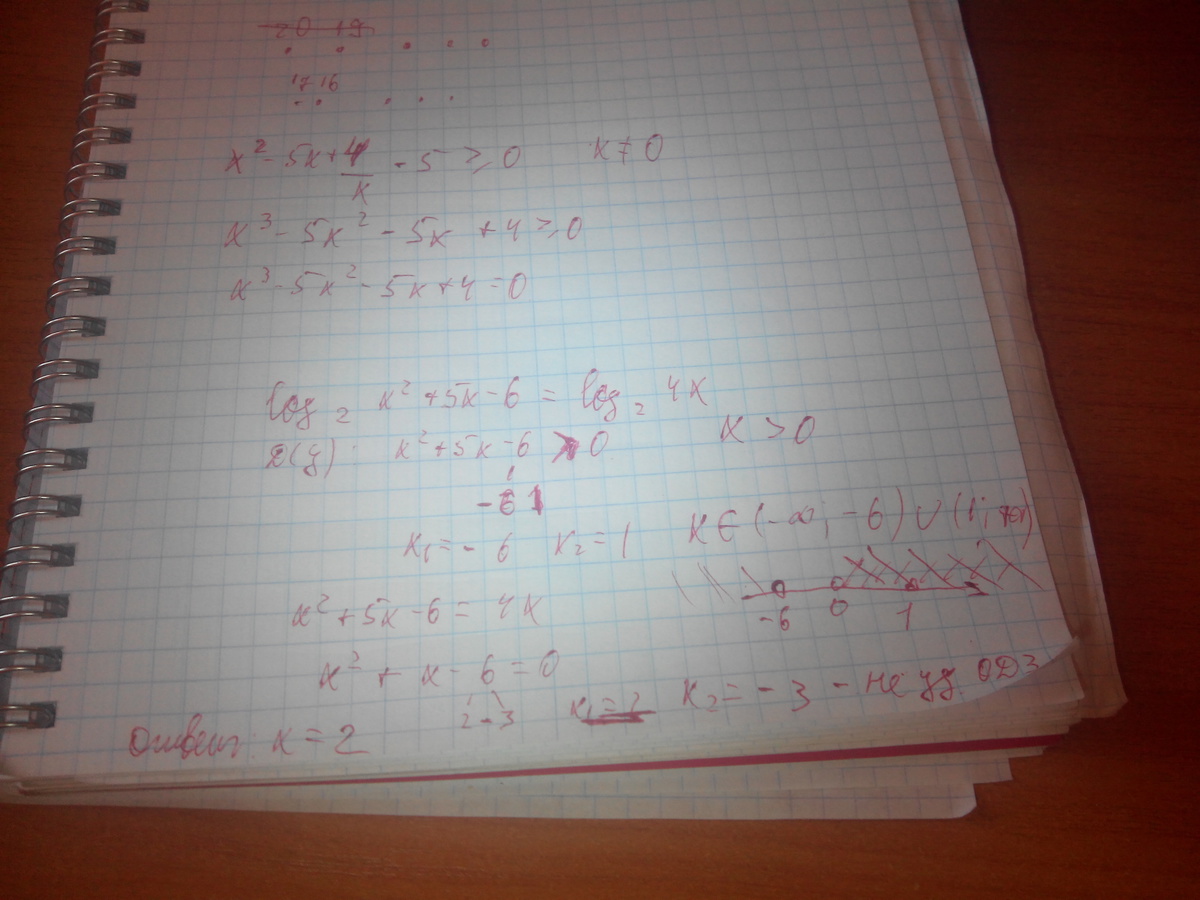 20 19
17 16
x² - 5x + 4/x - 5 ≥ 0 x ≠ 0
x³ - 5x² - 5x + 4 ≥ 0
x³ - 5x² - 5x + 4 = 0
log₂ x² + 5x - 6 = log₂ 4x
D(y): x² + 5x - 6 > 0 x > 0
-6 1
x₁ = -6 x₂ = 1 x ∈ (-∞; -6) ∪ (1; +∞)
-6 0 1
x² + 5x - 6 = 4x
x² + x - 6 = 0
2 -3 x₁ = 2 x₂ = -3 - не уд. ОДЗ
Ответ: x = 2